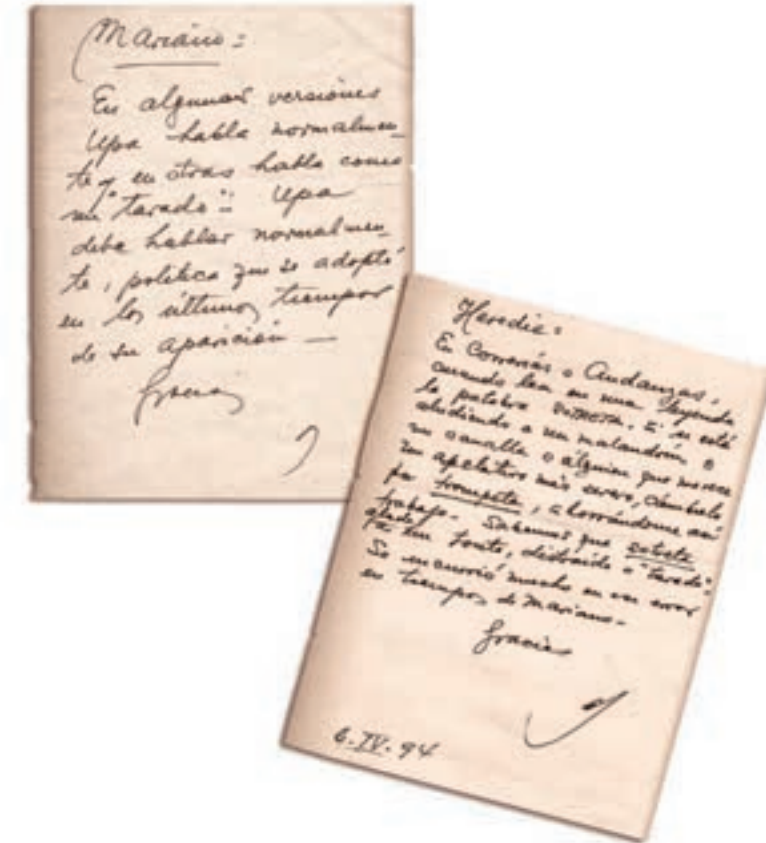 Mariano:
En algunas versiones
Upa habla normalmen_
te y en otras habla como
un "tarado". Upa
debe hablar normalmen_
te, política que se adoptó
en los últimos tiempos
de su aparición —
Gracias
Heredia:
En Correrías o Andanzas,
cuando lea en una leyenda
la palabra SOTRETA, si se está
aludiendo a un malandrín o
un canalla o alguien que merece
un apelativo más severo, cámbiela
por trompeta, ahorrándome así
trabajo. Sabemos que sotreta
alude
a un tonto, distraído o "tarado".
Se incurrió mucho en ese error
en tiempos de Mariano-
Gracias
6.IV.94